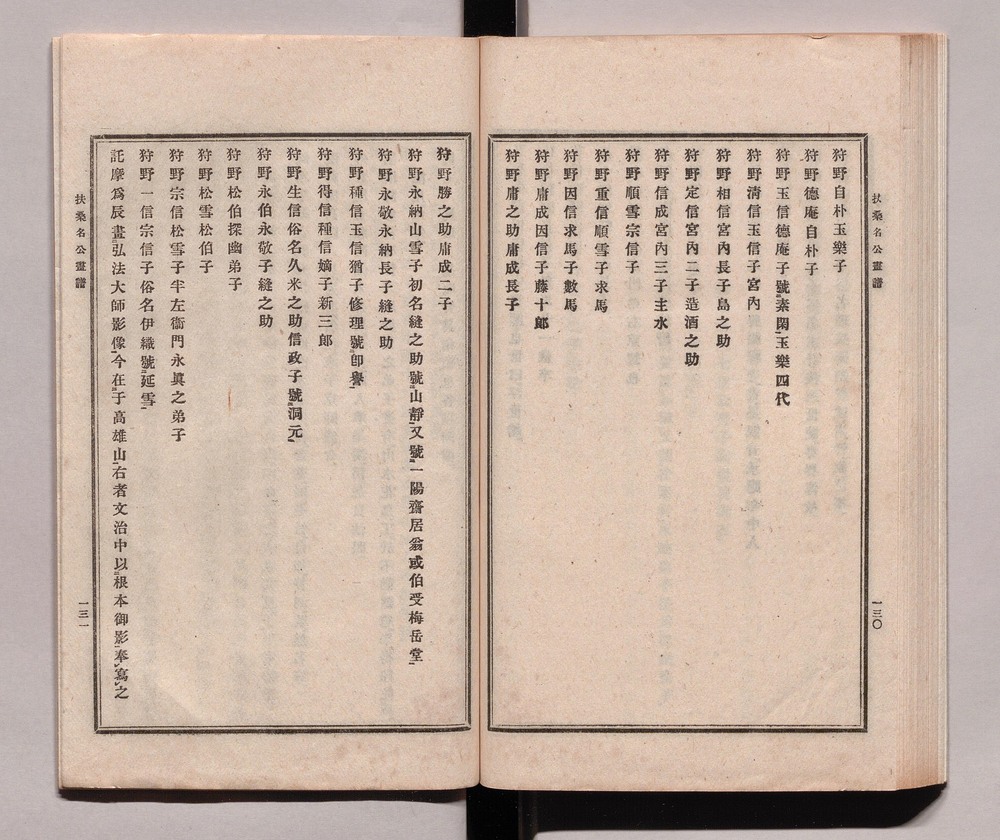 扶桑名公畫譜
一三〇
狩野自朴玉樂子
狩野德庵自朴子
狩野玉信德庵子號素閑玉樂四代
狩野淸信玉信子宮內
狩野相信宮內長子島之助
狩野定信宮內二子造酒之助
狩野信成宮內三子主水
狩野順雪宗信子
狩野重信順雪子求馬
狩野因信求馬子數馬
狩野庸成因信子藤十郞
狩野庸之助庸成長子
狩野勝之助庸成二子
狩野永納山雪子初名縫之助號山靜又號一陽齋居翁或伯受梅岳堂
狩野永敬永納長子縫之助
狩野種信玉信猶子修理號卽譽
狩野得信種信嫡子新三郞
狩野生信俗名久米之助信政子號洞元
狩野永伯永敬子縫之助
狩野松伯探幽弟子
狩野松雪松伯子
狩野宗信松雪子半左衞門永眞之弟子
狩野一信宗信子俗名伊織號延雪
託摩爲辰畫弘法大師影像今在于高雄山右者文治中以根本御影奉寫之
扶桑名公畫譜
一三一